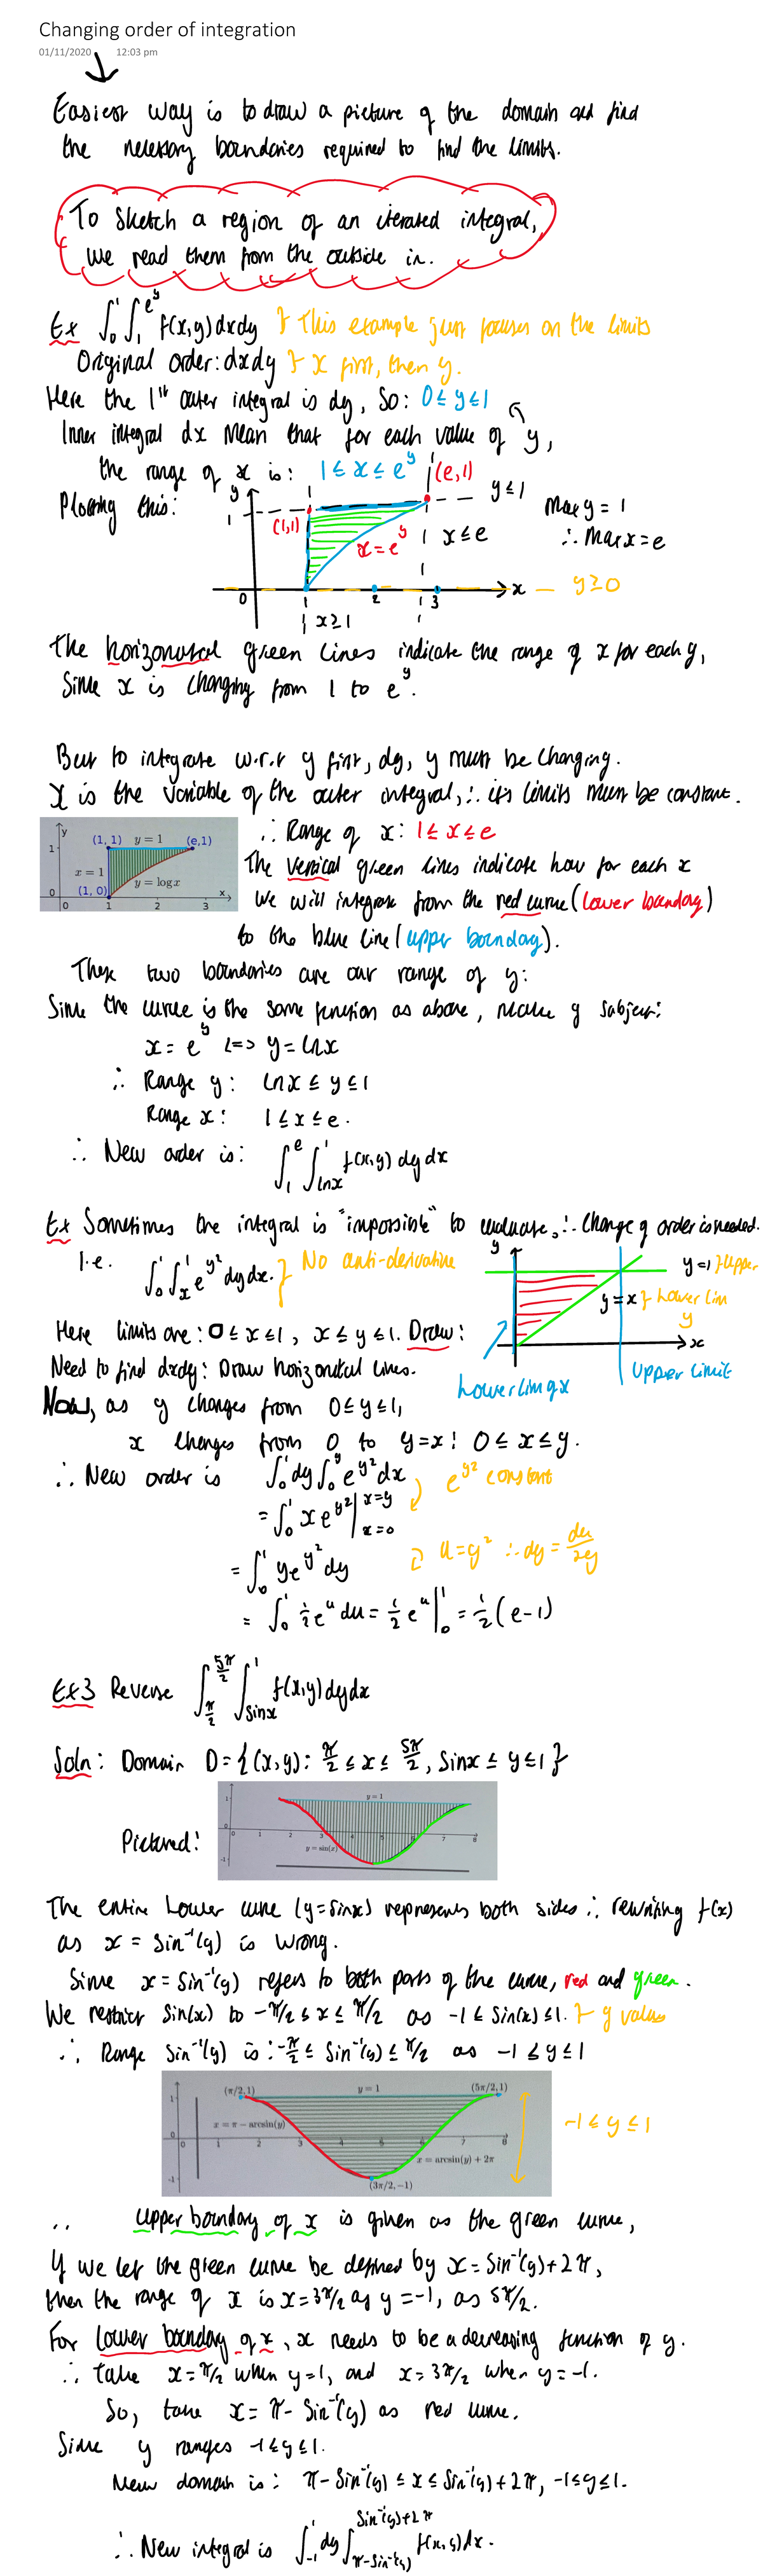 Changing order of integration
01/11/2020 12:03 pm
Easiest way is to draw a picture of the domain and find
the necessary boundaries required to find the limits.
To sketch a region of an iterated integral,
we read them from the outside in.
Ex ∫₀¹∫₁^(e^y) f(x,y)dxdy } This example just focuses on the limits
Original order: dxdy } x first, then y.
Here the 1st outer integral is dy, so: 0≤y≤1
Inner integral dx mean that for each value of y,
the range of x is: 1≤x≤e^y
Plotting this:
y
1
(1,1)
(e,1)
y≤1
x=e^y
x≤e
Max y = 1
∴ Max x = e
0
1
2
3
x
y≥0
x≥1
The horizontal green lines indicate the range of x for each y,
Since x is changing from 1 to e^y.
But to integrate w.r.t y first, dy, y must be changing.
x is the variable of the outer integral, ∴ its limits must be constant.
y
(1, 1) y = 1 (e,1)
1
x = 1
y = log x
(1, 0)
x
0
0 1 2 3
∴ Range of x: 1≤x≤e
The vertical green lines indicate how for each x
we will integrate from the red curve (lower boundary)
to the blue line (upper boundary).
These two boundaries are our range of y:
Since the curve is the same function as above, make y subject:
x = e^y <=> y = lnx
∴ Range y: lnx ≤ y ≤ 1
Range x: 1≤x≤e.
∴ New order is: ∫₁^e ∫_(lnx)^1 f(x,y) dydx
Ex Sometimes the integral is "impossible" to evaluate, ∴ Change of order is needed.
I.e. ∫₀¹∫ₓ¹ e^(y²) dydx. } No anti-derivative
y
y=1 } Upper
y=x } Lower lim
y
x
Lower lim of x
Upper limit
Here limits are: 0≤x≤1, x≤y≤1. Draw:
Need to find dxdy: Draw horizontal lines.
Now, as y changes from 0≤y≤1,
x changes from 0 to y=x: 0≤x≤y.
∴ New order is ∫₀¹dy∫₀^y e^(y²)dx
e^(y²) constant
= ∫₀¹ xe^(y²) |_(x=0)^(x=y)
= ∫₀¹ ye^(y²) dy
u=y² ∴ dy = du/2y
= ∫₀¹ ½e^u du = ½e^u |₀¹ = ½(e-1)
Ex3 Reverse ∫_(π/2)^(5π/2) ∫_(sinx)^1 f(x,y)dydx
Soln: Domain D={(x,y): π/2≤x≤5π/2, Sinx≤y≤1}
Pictured:
1
y = 1
0
0 1 2 3 4 5 6 7 8
y = sin(x)
-1
The entire lower curve (y=sinx) represents both sides ∴ rewriting f(x)
as x = Sin⁻¹(y) is wrong.
Since x=Sin⁻¹(y) refers to both parts of the curve, red and green.
We restrict Sin(x) to -π/2≤x≤π/2 as -1≤Sin(x)≤1. } y values
∴ Range Sin⁻¹(y) is: -π/2≤Sin⁻¹(y)≤π/2 as -1≤y≤1
(π/2,1)
y = 1
(5π/2,1)
1
x = π − arcsin(y)
0
0 1 2 3 4 5 6 7 8
x = arcsin(y) + 2π
-1
(3π/2,−1)
-1≤y≤1
∴ Upper boundary of x is given as the green curve,
If we let the green curve be defined by x=Sin⁻¹(y)+2π,
then the range of x is x=3π/2 as y=-1, as 5π/2.
For lower boundary of x, x needs to be a decreasing function of y.
∴ take x=π/2 when y=1, and x=3π/2 when y=-1.
So, take x=π-Sin⁻¹(y) as red curve.
Since y ranges -1≤y≤1.
New domain is: π-Sin⁻¹(y)≤x≤Sin⁻¹(y)+2π, -1≤y≤1.
∴ New integral is ∫₋₁¹dy∫_(π-Sin⁻¹(y))^(Sin⁻¹(y)+2π) f(x,y)dx.